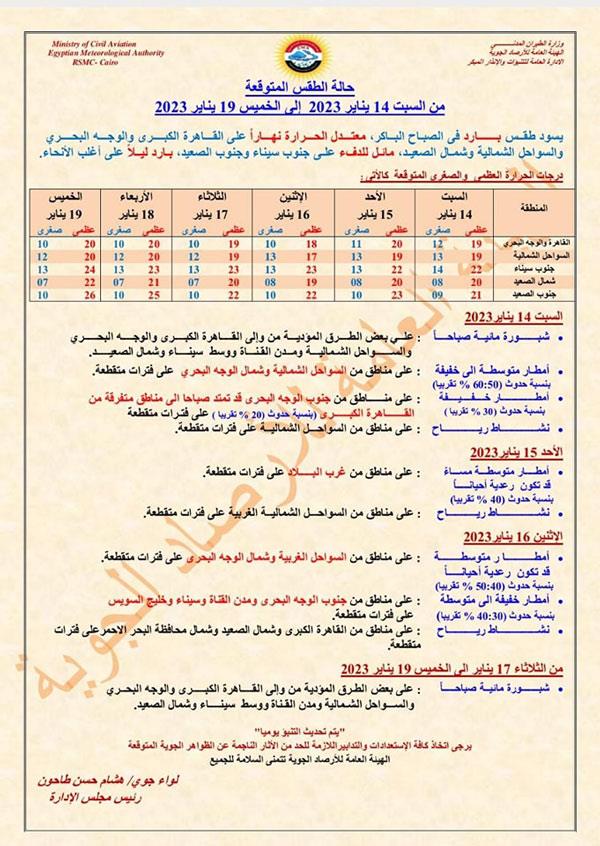 Ministry of Civil Aviation
Egyptian Meteorological Authority
RSMC- Cairo
وزارة الطيران المدنـــي
الهيئة العامة للأرصاد الجوية
الإدارة العامة للتنبؤات والإنذار المبكر
حالة الطقس المتوقعة
من السبت 14 يناير 2023 إلى الخميس 19 يناير 2023
يسود طقس بـــارد فى الصباح الباكر، معتــدل الحرارة نهاراً على القاهرة الكبرى والوجه البحري
والسواحل الشمالية وشمال الصعيد، مائل للدفاء على جنوب سيناء وجنوب الصعيد، بارد ليلاً على أغلب الأنحاء.
درجات الحرارة العظمي والصغرى المتوقعة كالآتي:
المنطقة السبت 14 يناير الأحد 15 يناير الإثنين 16 يناير الثلاثاء 17 يناير الأربعاء 18 يناير الخميس 19 يناير
عظمى صغرى عظمى صغرى عظمى صغرى عظمى صغرى عظمى صغرى عظمى صغرى
القاهرة والوجه البحري 19 12 20 11 18 10 19 10 20 10 20 10
السواحل الشمالية 19 13 19 13 17 13 19 12 20 12 20 12
جنوب سيناء 22 14 22 13 23 13 23 13 23 13 24 13
شمال الصعيد 20 08 20 08 19 08 20 07 21 07 22 07
جنوب الصعيد 21 09 23 10 22 10 22 10 25 10 26 10
السبت 14 يناير2023
• شبـــورة مائية صباحـاً : علـي بعض الطرق المؤدية من وإلى القاهرة الكبرى والوجه البحري
والسـواحل الشمالية ومدن القناة ووسط سينـاء وشمال الصعيـــد.
• أمطار متوسطة الى خفيفة : على مناطق من السواحل الشمالية وشمال الوجه البحري على فترات متقطعة.
بنسبة حدوث (60:50 % تقريبا)
• أمطــار خفـــيفـة : على منـــاطق من جنوب الوجه البحرى قد تمتد صباحا الى مناطق متفرقة من
بنسبة حدوث (30 % تقريبا ) القاهرة الكبرى (بنسبة حدوث (20 % تقريبا ) على فترات متقطعة
• نشـــاط ريـــاح : على مناطق من السواحـل الشماليـة على فترات متقطعة.
الأحد 15 يناير2023
• أمطـار متوسطة مساءً : على مناطق من غرب البـــلاد على فترات متقطعة.
قد تكون رعدية أحيانــاً
بنسبة حدوث (40 % تقريبا)
• نشـــاط ريـــاح : على مناطق من السواحــل الشماليـة الغربية على فترات متقطعة.
الإثنين 16 يناير2023
• أمطـــار متوسطــــة : على مناطق من السواحل الغربية وشمال الوجه البحرى على فترات متقطعة.
قد تكون رعدية أحيانــاً
بنسبة حدوث (50:40 % تقريبا)
• أمطار خفيفة الى متوسطة : على مناطق من جنوب الوجه البحرى ومدن القناة وسيناء وخليج السويس
بنسبة حدوث (40:30 % تقريبا) على فترات متقطعة.
• نشـــاط ريـــاح : على مناطق من القاهرة الكبرى وشمال الصعيد وشمال محافظة البحر الاحمرعلى فترات
متقطعة.
من الثلاثاء 17 يناير الى الخميس 19 يناير 2023
• شبـــورة مائية صباحـاً : على بعض الطرق المؤدية من وإلى القاهرة الكبـرى والوجه البحري
والسـواحل الشمالية ومدن القناة ووسط سينـاء وشمال الصعيد.
"يتم تحديث التنبؤ يوميا"
يرجى اتخاذ كافة الإستعدادات والتدابيراللازمة للحد من الآثار الناجمة عن الظواهر الجوية المتوقعة
الهيئة العامة للأرصاد الجوية تتمنى السلامة للجميع
لواء جوي/ هشام حسن طاحون
رئيس مجلس الإدارة